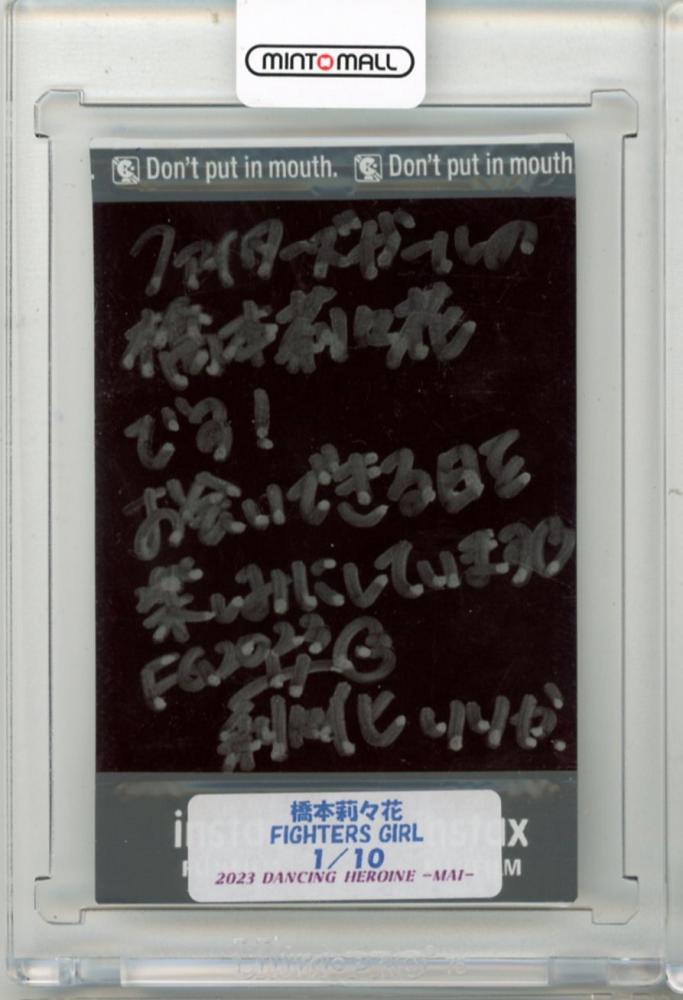 MINT MALL
Don't put in mouth. Don't put in mouth
ファイターズガールの
橋本莉々花
です!
お会いできる日を
楽しみにしています
FG2023
莉々花 りりか
instax
橋本莉々花
FIGHTERS GIRL
1/10
2023 DANCING HEROINE -MAI-